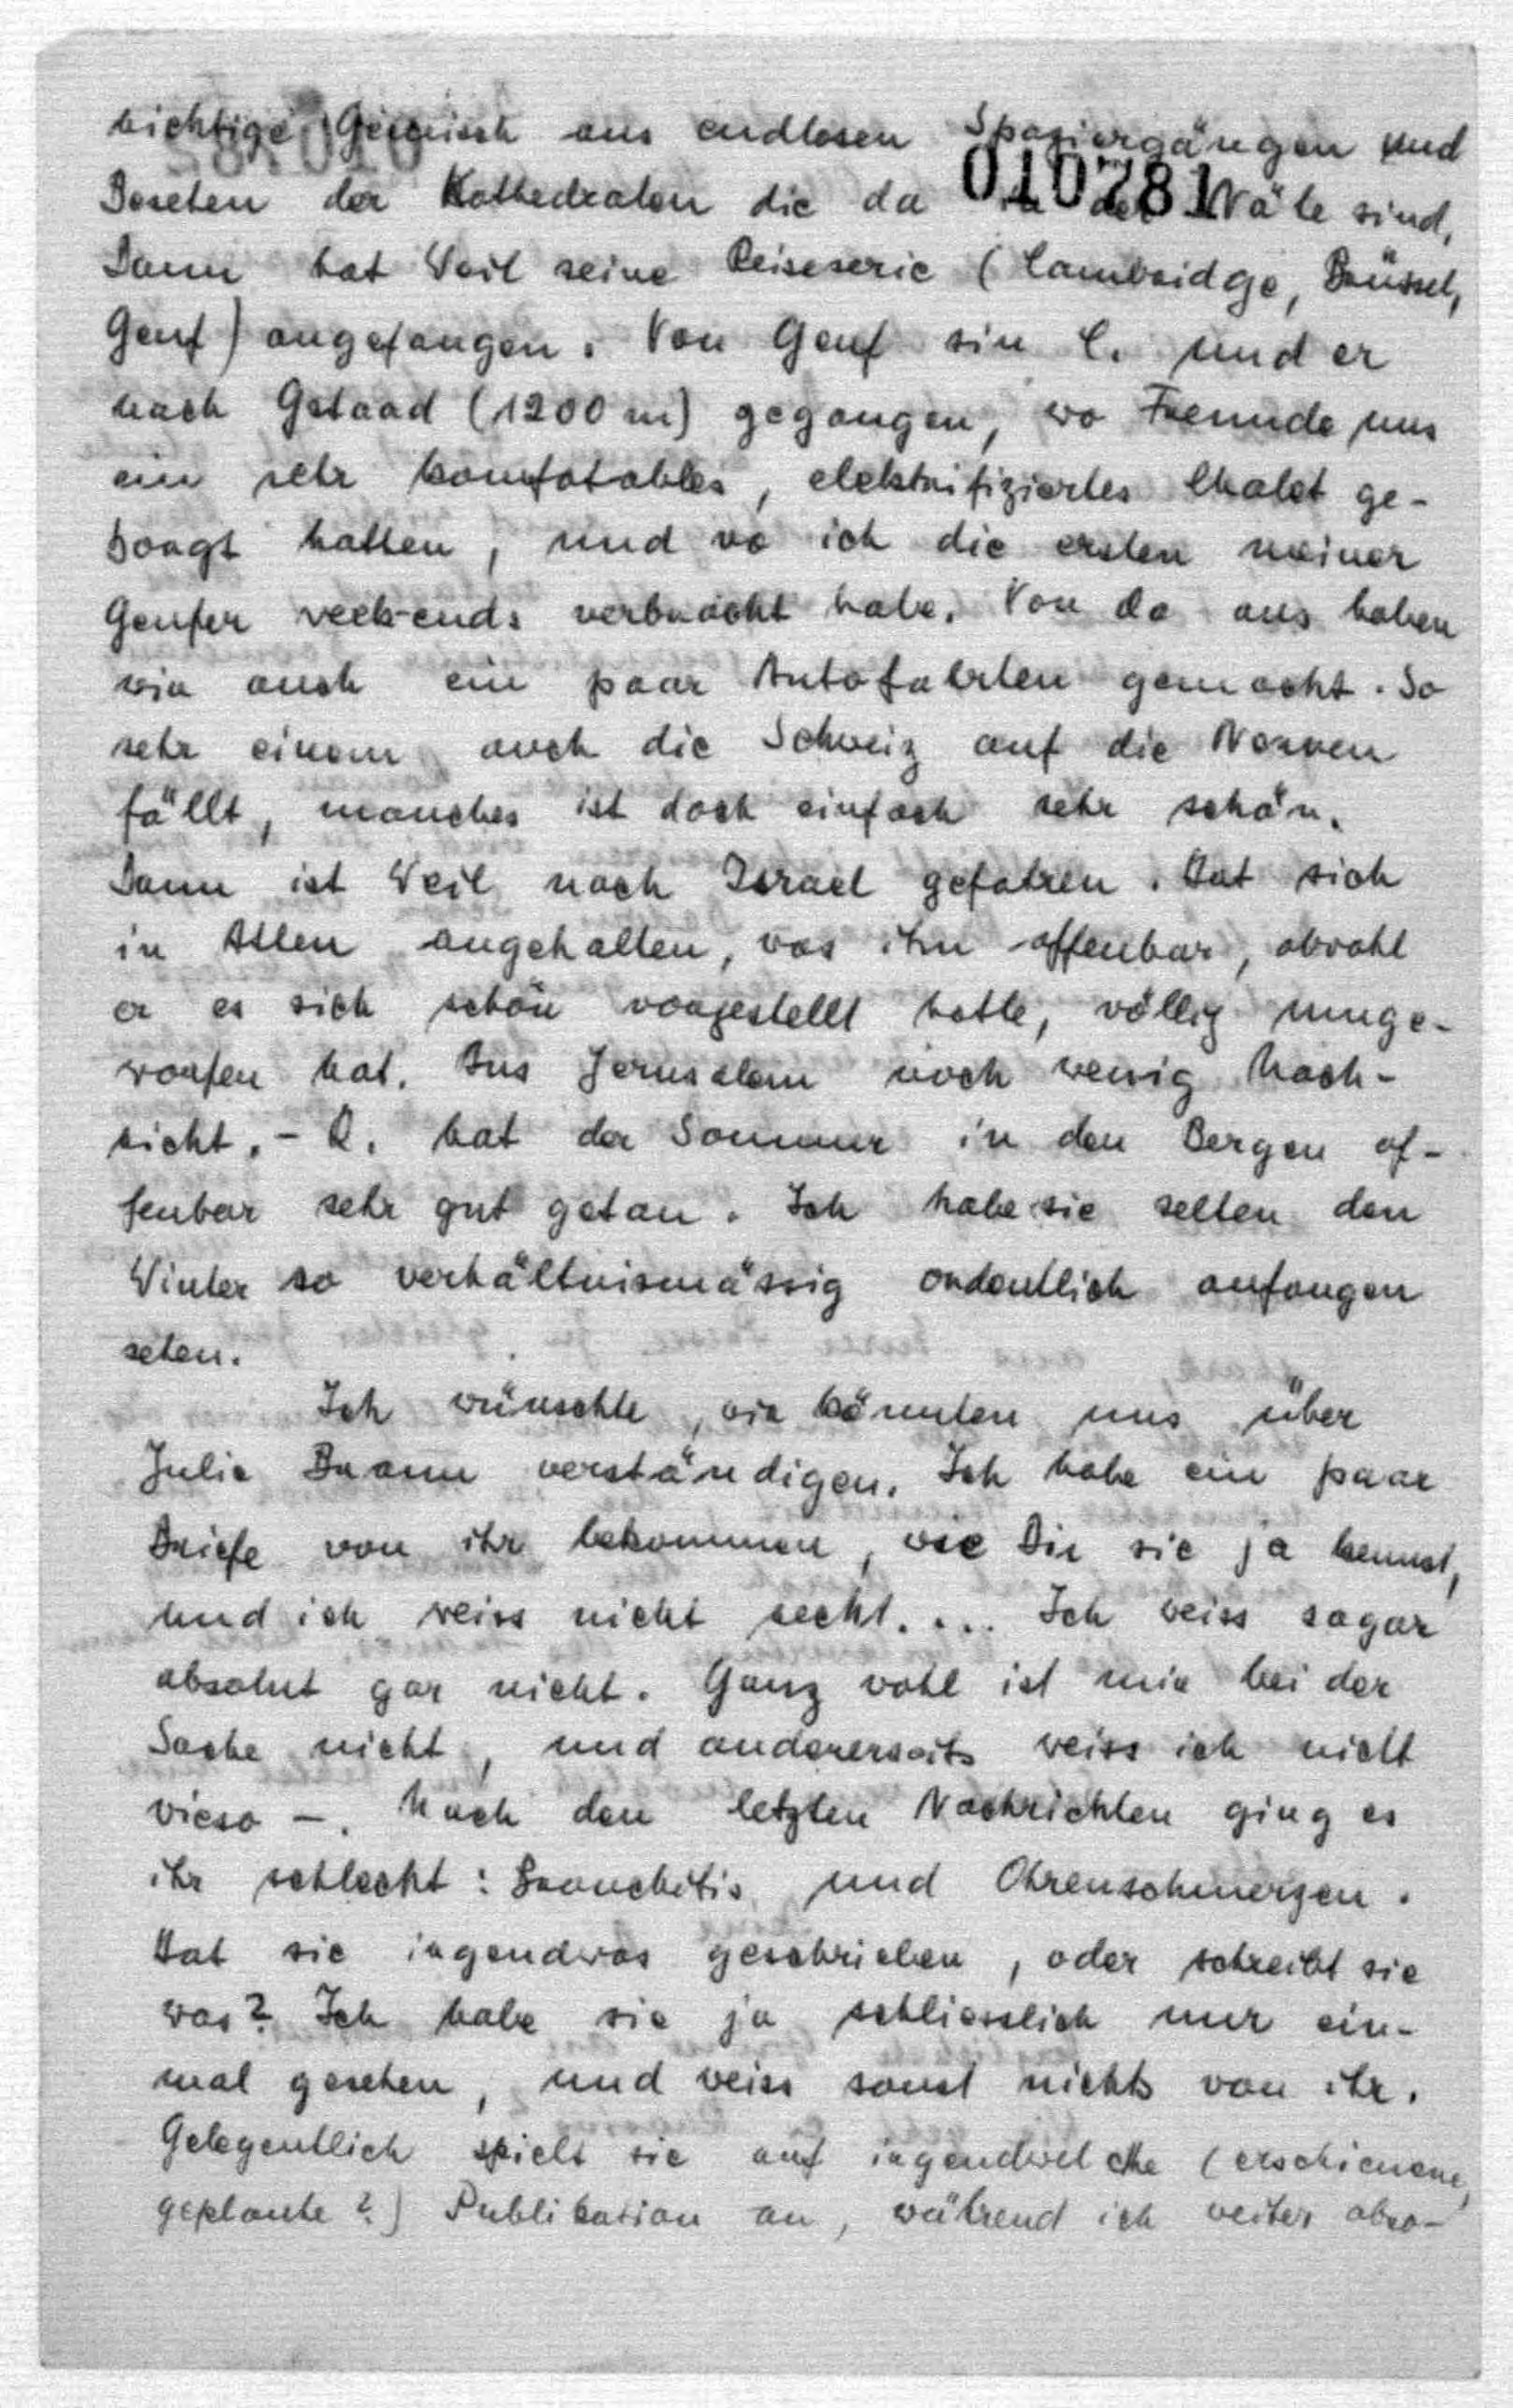 richtige Gemisch aus endlosen Spaziergängen und
010781
Besehen der Kathedralen die da in der Nähe sind,
Dann hat Weil seine Reiseserie (Cambridge, Brüssel,
Genf) angefangen. Von Genf sin C. und er
nach Gstaad (1200 m) gegangen, wo Freunde uns
ein sehr komfotables, elektrifiziertes Chalet ge-
borgt hatten, und wo ich die ersten meiner
Genfer week-ends verbracht habe. Von da aus haben
wir auch ein paar Autofahrten gemacht. So
sehr einem auch die Schweiz auf die Nerven
fällt, manches ist doch einfach sehr schön.
Dann ist Weil nach Israel gefahren. Hat sich
in Athen angehalten, was ihn offenbar, obwohl
er es sich schön vorgestellt hatte, völlig umge-
worfen hat. Aus Jerusalem noch wenig Nach-
richt. - hat der Sommer in den Bergen of-
fenbar sehr gut getan. Ich habe sie selten den
Winter so verhältnismässig ordentlich anfangen
sehen.
Ich wünschte, wir könnten uns über
Julie Braun verständigen. Ich habe ein paar
Briefe von ihr bekommen, wie Du sie ja kennst,
und ich weiss nicht recht.... Ich weiss sogar
absolut gar nicht. Ganz wohl ist mir bei der
Sache nicht, und andererseits weiss ich nicht
wieso -. Nach den letzten Nachrichten ging es
ihr schlecht: Bronchitis und Ohrenschmerzen.
Hat sie irgendwas geschrieben, oder schreibt sie
was? Ich habe sie ja schliesslich nur ein-
mal gesehen, und weiss sonst nichts von ihr.
Gelegentlich spielt sie auf irgendwelche (erschienene,
geplante?) Publikation an, während ich weiter abso-